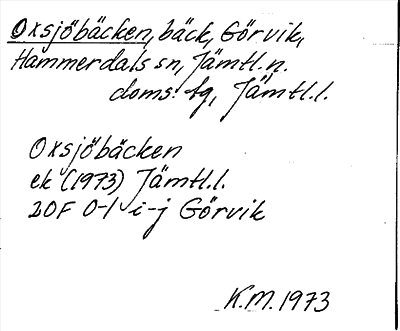 Oxsjöbäcken, bäck, Görvik,
Hammerdals sn, Jämtl.n.
doms. fg, Jämtl.l.
Oxsjöbäcken
ek (1973) Jämtl.l.
20F 0-1 i-j Görvik
K.M. 1973